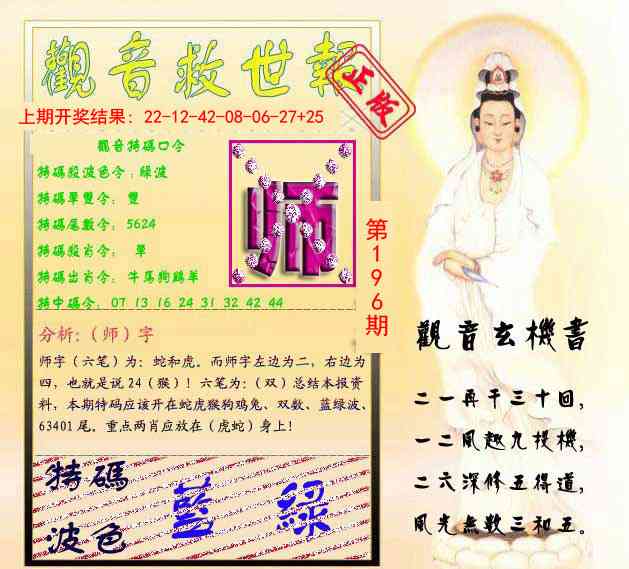 觀音救世報
正版
上期开奖结果：22-12-42-08-06-27+25
觀音特碼口令
特碼殺波色令：綠波
特碼單雙令：雙
特碼尾數令：5624
特碼殺肖令：單
特碼出肖令：牛馬狗鷄羊
特中碼令：07 13 16 24 31 32 42 44
师
第196期
分析:（师）字
师字（六笔）为：蛇和虎。而师字左边为二，右边为
四，也就是说24（猴）！六笔为：（双）总结本报资
料，本期特码应该开在蛇虎猴狗鸡兔、双数、蓝绿波、
63401尾。重点两肖应放在（虎蛇）身上！
特碼
波色
藍 綠
觀音玄機書
二一再干三十回，
一二風趣九投機，
二六深修五得道，
風光無数三和五。